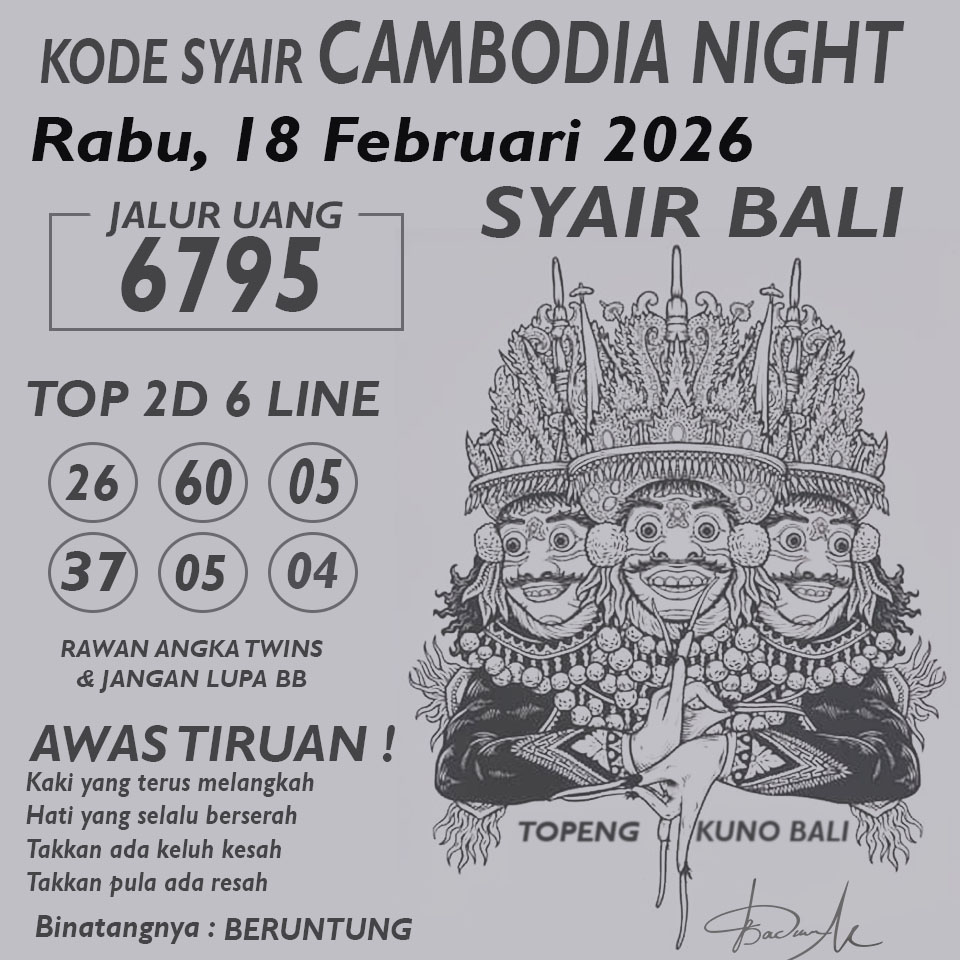 KODE SYAIR CAMBODIA NIGHT
Rabu, 18 Februari 2026
SYAIR BALI
JALUR UANG
6795
TOP 2D 6 LINE
26 60 05
37 05 04
RAWAN ANGKA TWINS
& JANGAN LUPA BB
AWAS TIRUAN !
Kaki yang terus melangkah
Hati yang selalu berserah
Takkan ada keluh kesah
Takkan pula ada resah
Binatangnya : BERUNTUNG
TOPENG KUNO BALI